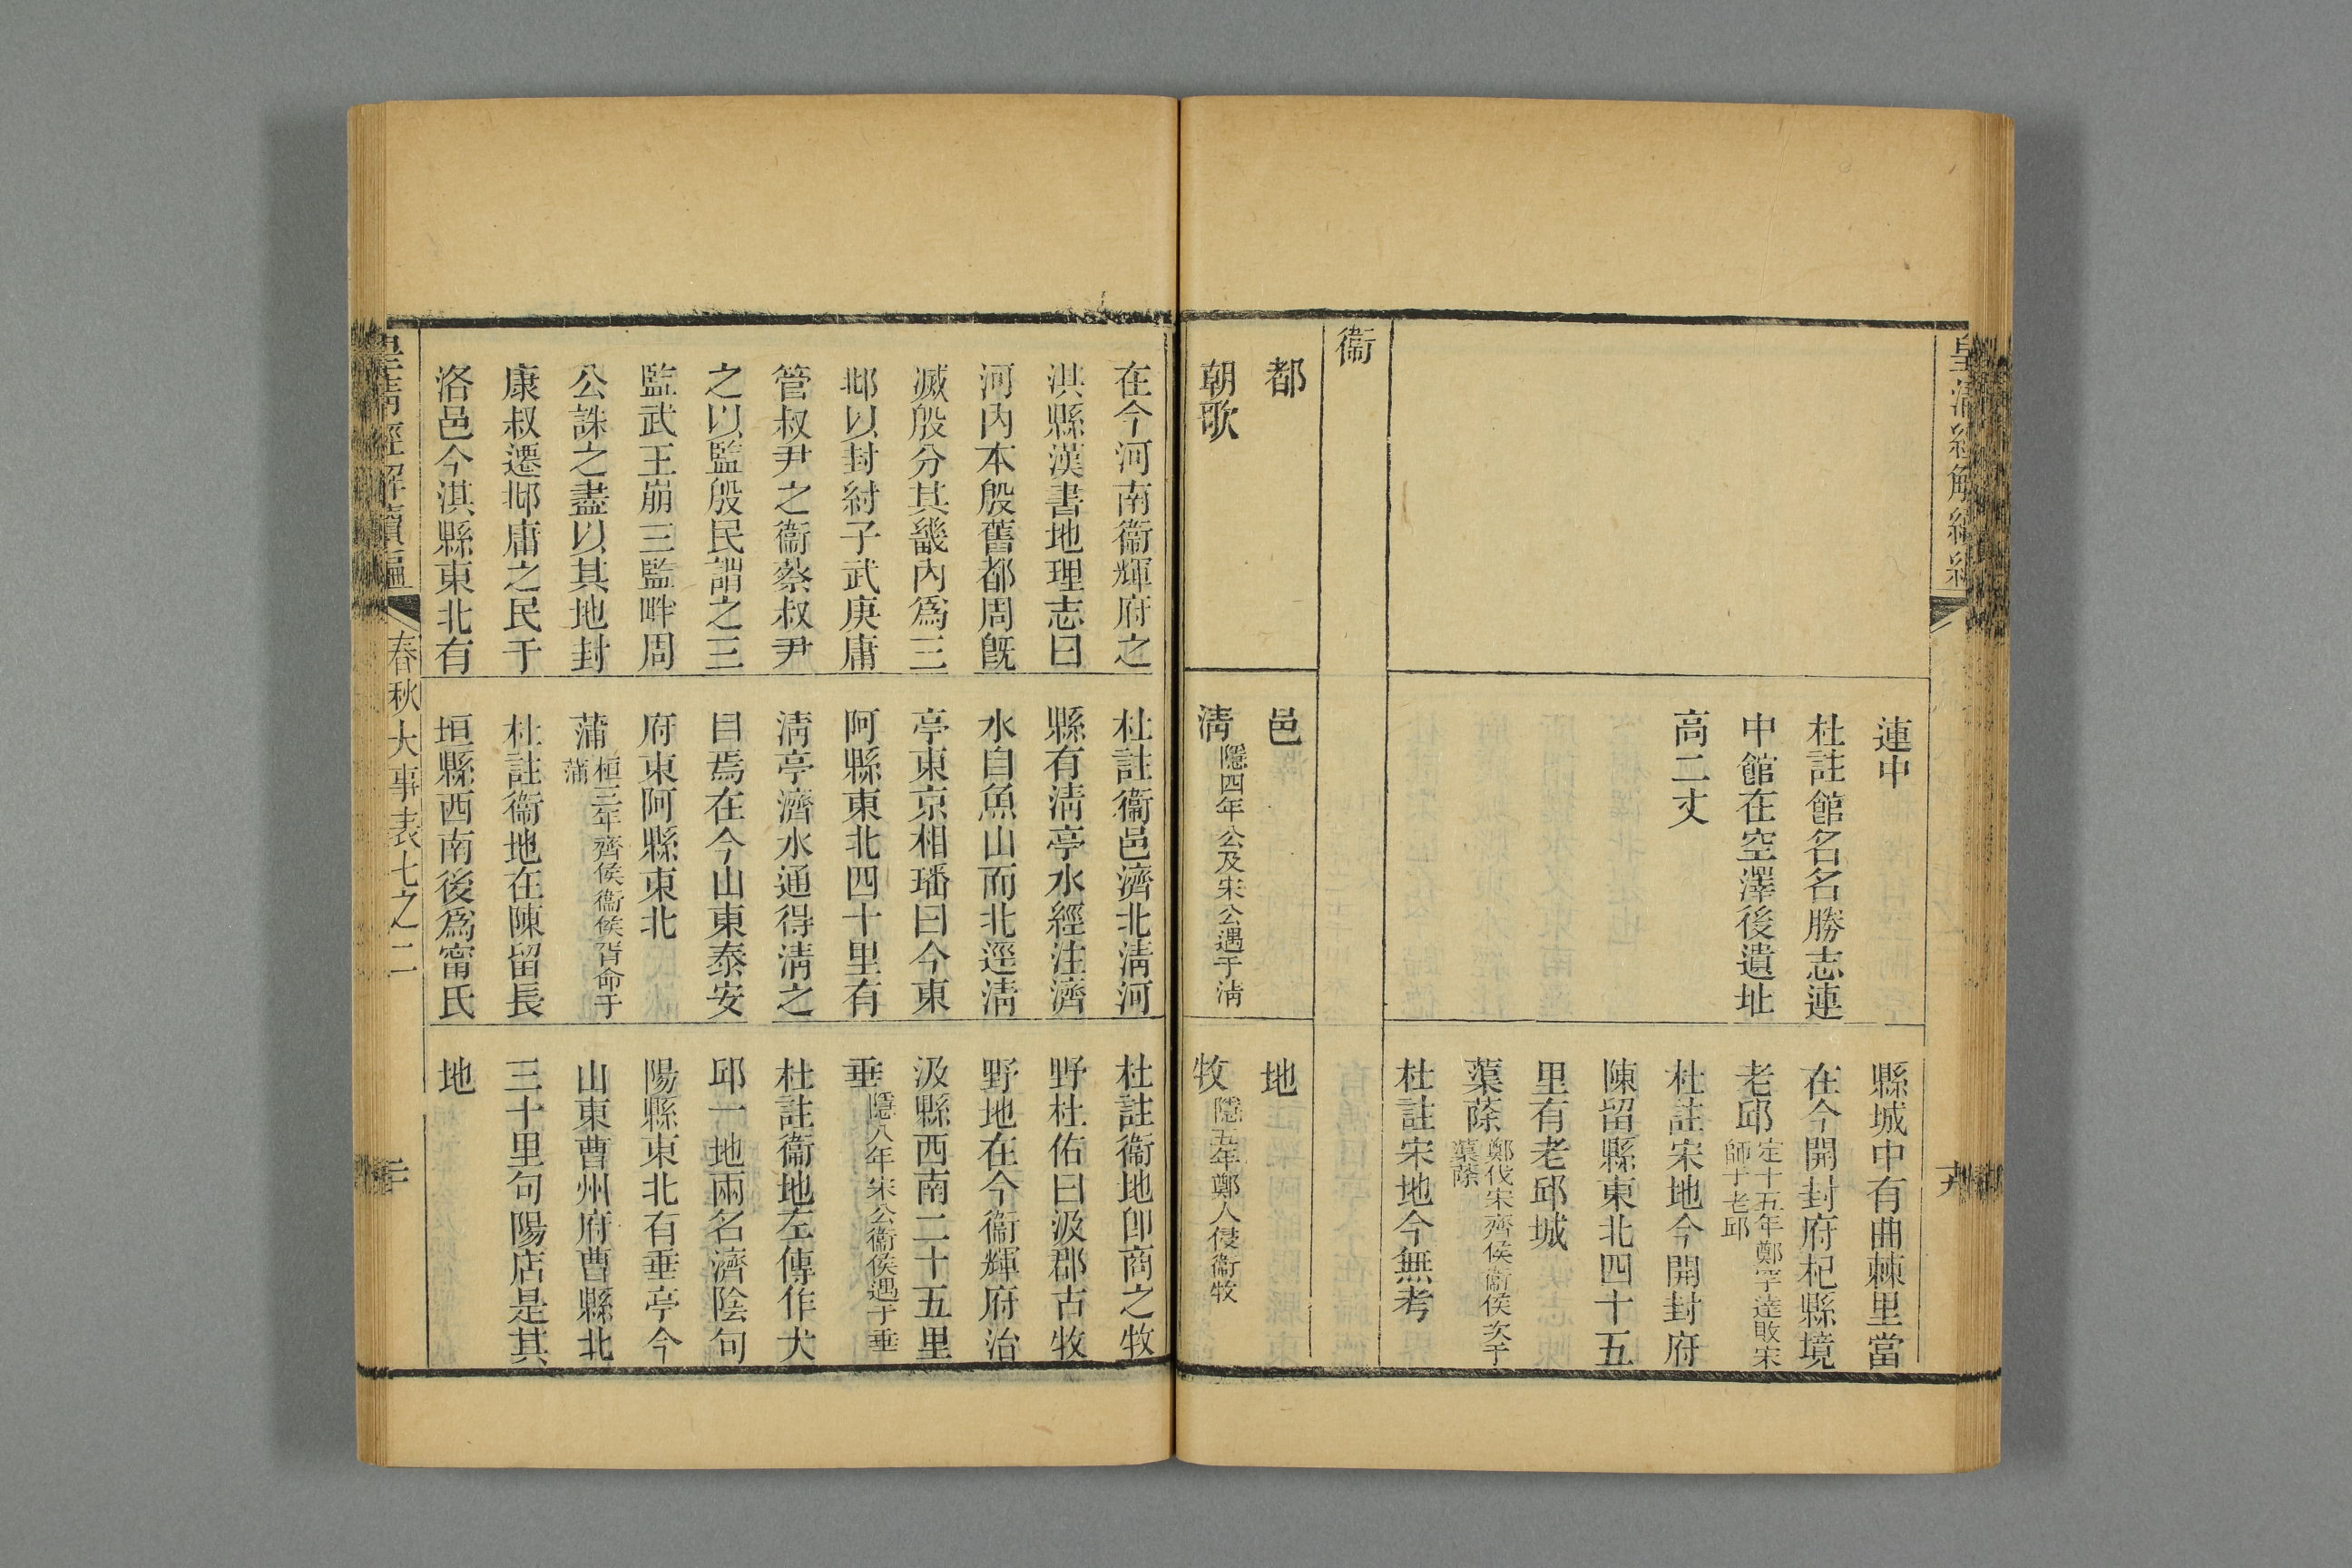 皇清經解續編
連中
杜註館名名勝志連
中館在空澤後遺址
高二丈
縣城中有曲棘里當
在今開封府杞縣境
老邱定十五年鄭罕達敗宋
師于老邱
杜註宋地今開封府
陳留縣東北四十五
里有老邱城
蕖蒢鄭伐宋齊侯衞侯次于
蕖蒢
杜註宋地今無考
衞
都
朝歌
邑
淸隱四年公及宋公遇于淸
地
牧隱五年鄭人侵衞牧
在今河南衞輝府之
淇縣漢書地理志曰
河內本殷舊都周旣
滅殷分其畿內爲三
邶以封紂子武庚庸
管叔尹之衞蔡叔尹
之以監殷民謂之三
監武王崩三監畔周
公誅之盡以其地封
康叔遷邶庸之民于
洛邑今淇縣東北有
杜註衞邑濟北淸河
縣有淸亭水經注濟
水自魚山而北逕淸
亭東京相璠曰今東
阿縣東北四十里有
淸亭濟水通得淸之
目焉在今山東泰安
府東阿縣東北
蒲桓三年齊侯衞侯胥命于
蒲
杜註衞地在陳留長
垣縣西南後爲甯氏
杜註衞地卽商之牧
野杜佑曰汲郡古牧
野地在今衞輝府治
汲縣西南二十五里
垂隱八年宋公衞侯遇于垂
杜註衞地左傳作犬
邱一地兩名濟陰句
陽縣東北有垂亭今
山東曹州府曹縣北
三十里句陽店是其
地
皇淸經解續編
春秋大事表七之二